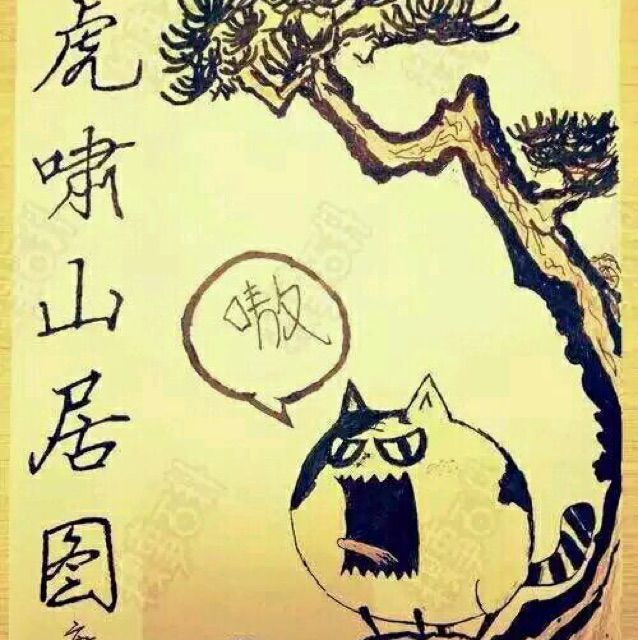 虎啸山居图
嗷